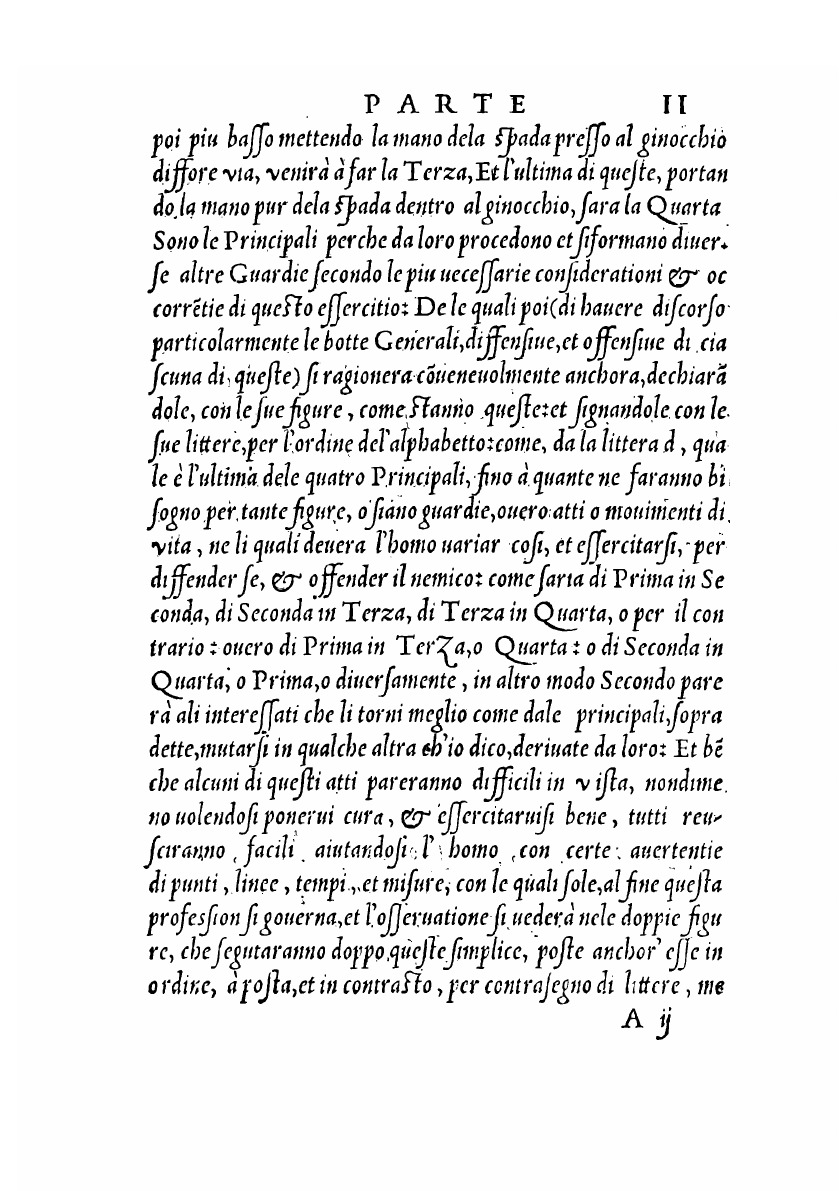 PARTE II
poi piu baſſo mettendo la mano dela ſpada preſſo al ginocchio
diffore via, venirà à far la Terza, Et l'ultima di queſte, portan
do la mano pur dela ſpada dentro al ginocchio, ſara la Quarta
Sono le Principali perche da loro procedono et ſi formano diuer-
ſe altre Guardie ſecondo le piu ueceſſarie conſiderationi & oc
corrẽtie di queſto eſſercitio: De le quali poi (di hauere diſcorſo
particolarmente le botte Generali, diffenſiue, et offenſiue di cia
ſcuna di queſte) ſi ragionera cõueneuolmente anchora, dechiarã
dole, con le ſue figure, come ſtanno queſte: et ſignandole con le
ſue littere, per l'ordine del'alphabetto: come, da la littera d, qua
le è l'ultima dele quatro Principali, fino à quante ne faranno bi
ſogno per tante figure, o ſiano guardie, ouero atti o mouimenti di
vita, ne li quali deuera l'homo uariar coſi, et eſſercitarſi, per
diffenderſe, & offender il nemico: come ſaria di Prima in Se
conda, di Seconda in Terza, di Terza in Quarta, o per il con
trario: ouero di Prima in Terza, o Quarta: o di Seconda in
Quarta, o Prima, o diuerſamente, in altro modo Secondo pare
rà ali intereſſati che li torni meglio come dale principali, ſopra
dette, mutarſi in qualche altra ch'io dico, deriuate da loro: Et bẽ
che alcuni di queſti atti pareranno difficili in viſta, nondime
no uolendoſi ponerui cura, & eſſercitaruiſi bene, tutti reu-
ſciranno, facili aiutandoſi l'homo, con certe auertentie
di punti, linee, tempi, et miſure, con le quali ſole, al fine queſta
profeſſion ſi gouerna, et l'oſſeruatione ſi uederà nele doppie figu
re, che ſegutaranno doppo queſte ſimplice, poſte anchor' eſſe in
ordine, à poſta, et in contraſto, per contraſegno di littere, me
A ij